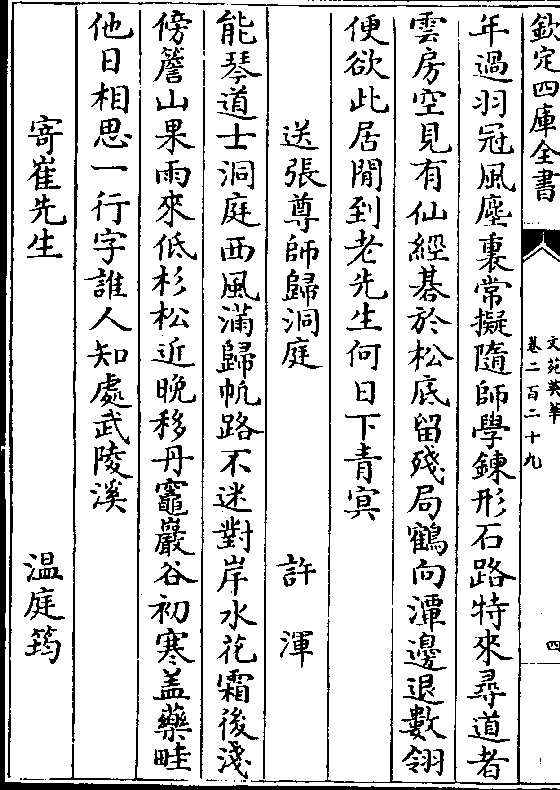 欽定四庫全書
文苑英華
卷二百二十九
四
年過羽冠風塵裏常擬隨師學鍊形石路特來尋道者
雲房空見有仙經碁於松底留殘局鶴向潭邊退數翎
便欲此居閒到老先生何日下青㝠
送張尊師歸洞庭
許渾
能琴道士洞庭西風滿歸帆路不迷對岸水花霜後淺
傍簷山果雨來低杉松近晚移丹竈巖谷初寒盖藥畦
他日相思一行字誰人知處武陵溪
寄崔先生
温庭筠